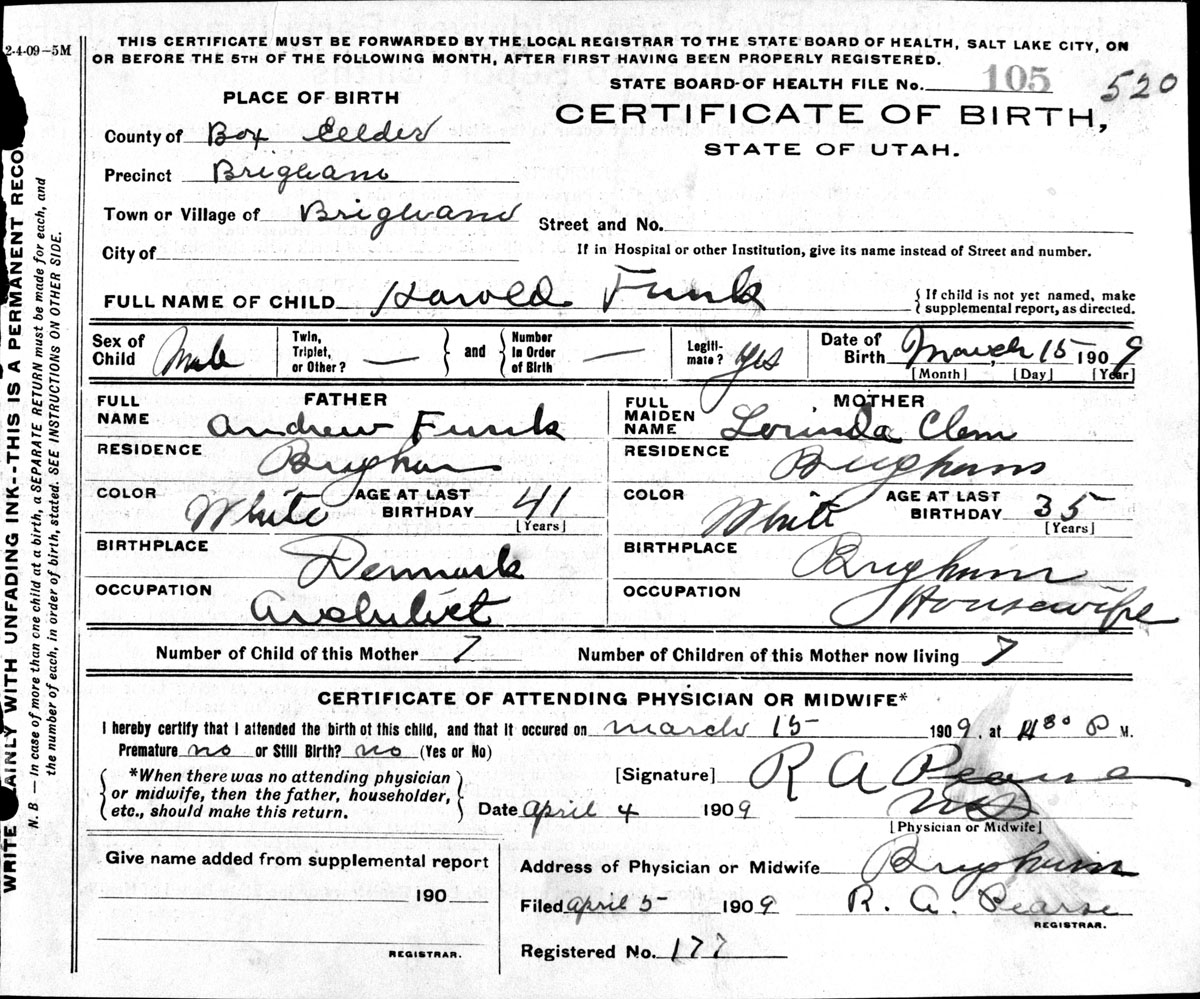 2-4-09-5M
THIS CERTIFICATE MUST BE FORWARDED BY THE LOCAL REGISTRAR TO THE STATE BOARD OF HEALTH, SALT LAKE CITY, ON
OR BEFORE THE 5TH OF THE FOLLOWING MONTH, AFTER FIRST HAVING BEEN PROPERLY REGISTERED.
STATE BOARD OF HEALTH FILE No. 105 520
PLACE OF BIRTH
CERTIFICATE OF BIRTH,
STATE OF UTAH.
County of Box Elder
Precinct Brigham
Town or Village of Brigham
Street and No.
City of
If in Hospital or other Institution, give its name instead of Street and number.
FULL NAME OF CHILD Harold Funk
{ If child is not yet named, make
supplemental report, as directed.
Sex of Child Male
Twin, Triplet, or Other? —
} and {
Number In Order of Birth —
Legiti-mate? Yes
Date of Birth March 15 1909
[Month] [Day] [Year]
FATHER
FULL NAME Andrew Funk
RESIDENCE Brigham
COLOR White AGE AT LAST BIRTHDAY 41
[Years]
BIRTHPLACE Denmark
OCCUPATION Architect
MOTHER
FULL MAIDEN NAME Lorinda Clem
RESIDENCE Brigham
COLOR White AGE AT LAST BIRTHDAY 35
[Years]
BIRTHPLACE Brigham
OCCUPATION Housewife
Number of Child of this Mother 7 Number of Children of this Mother now living 7
CERTIFICATE OF ATTENDING PHYSICIAN OR MIDWIFE*
I hereby certify that I attended the birth of this child, and that it occured on March 15 1909, at 4:30 P M.
Premature no or Still Birth? no (Yes or No)
{ *When there was no attending physician
or midwife, then the father, householder,
etc., should make this return. }
[Signature] R A Pearse
MD
[Physician or Midwife]
Date April 4 1909
Give name added from supplemental report
190
REGISTRAR.
Address of Physician or Midwife Brigham
Filed April 5 1909 R. A. Pearse
REGISTRAR.
Registered No. 177
WRITE AINLY WITH UNFADING INK--THIS IS A PERMANENT RECO
N. B. — In case of more than one child at a birth, a SEPARATE RETURN must be made for each, and
the number of each, in order of birth, stated. SEE INSTRUCTIONS ON OTHER SIDE.